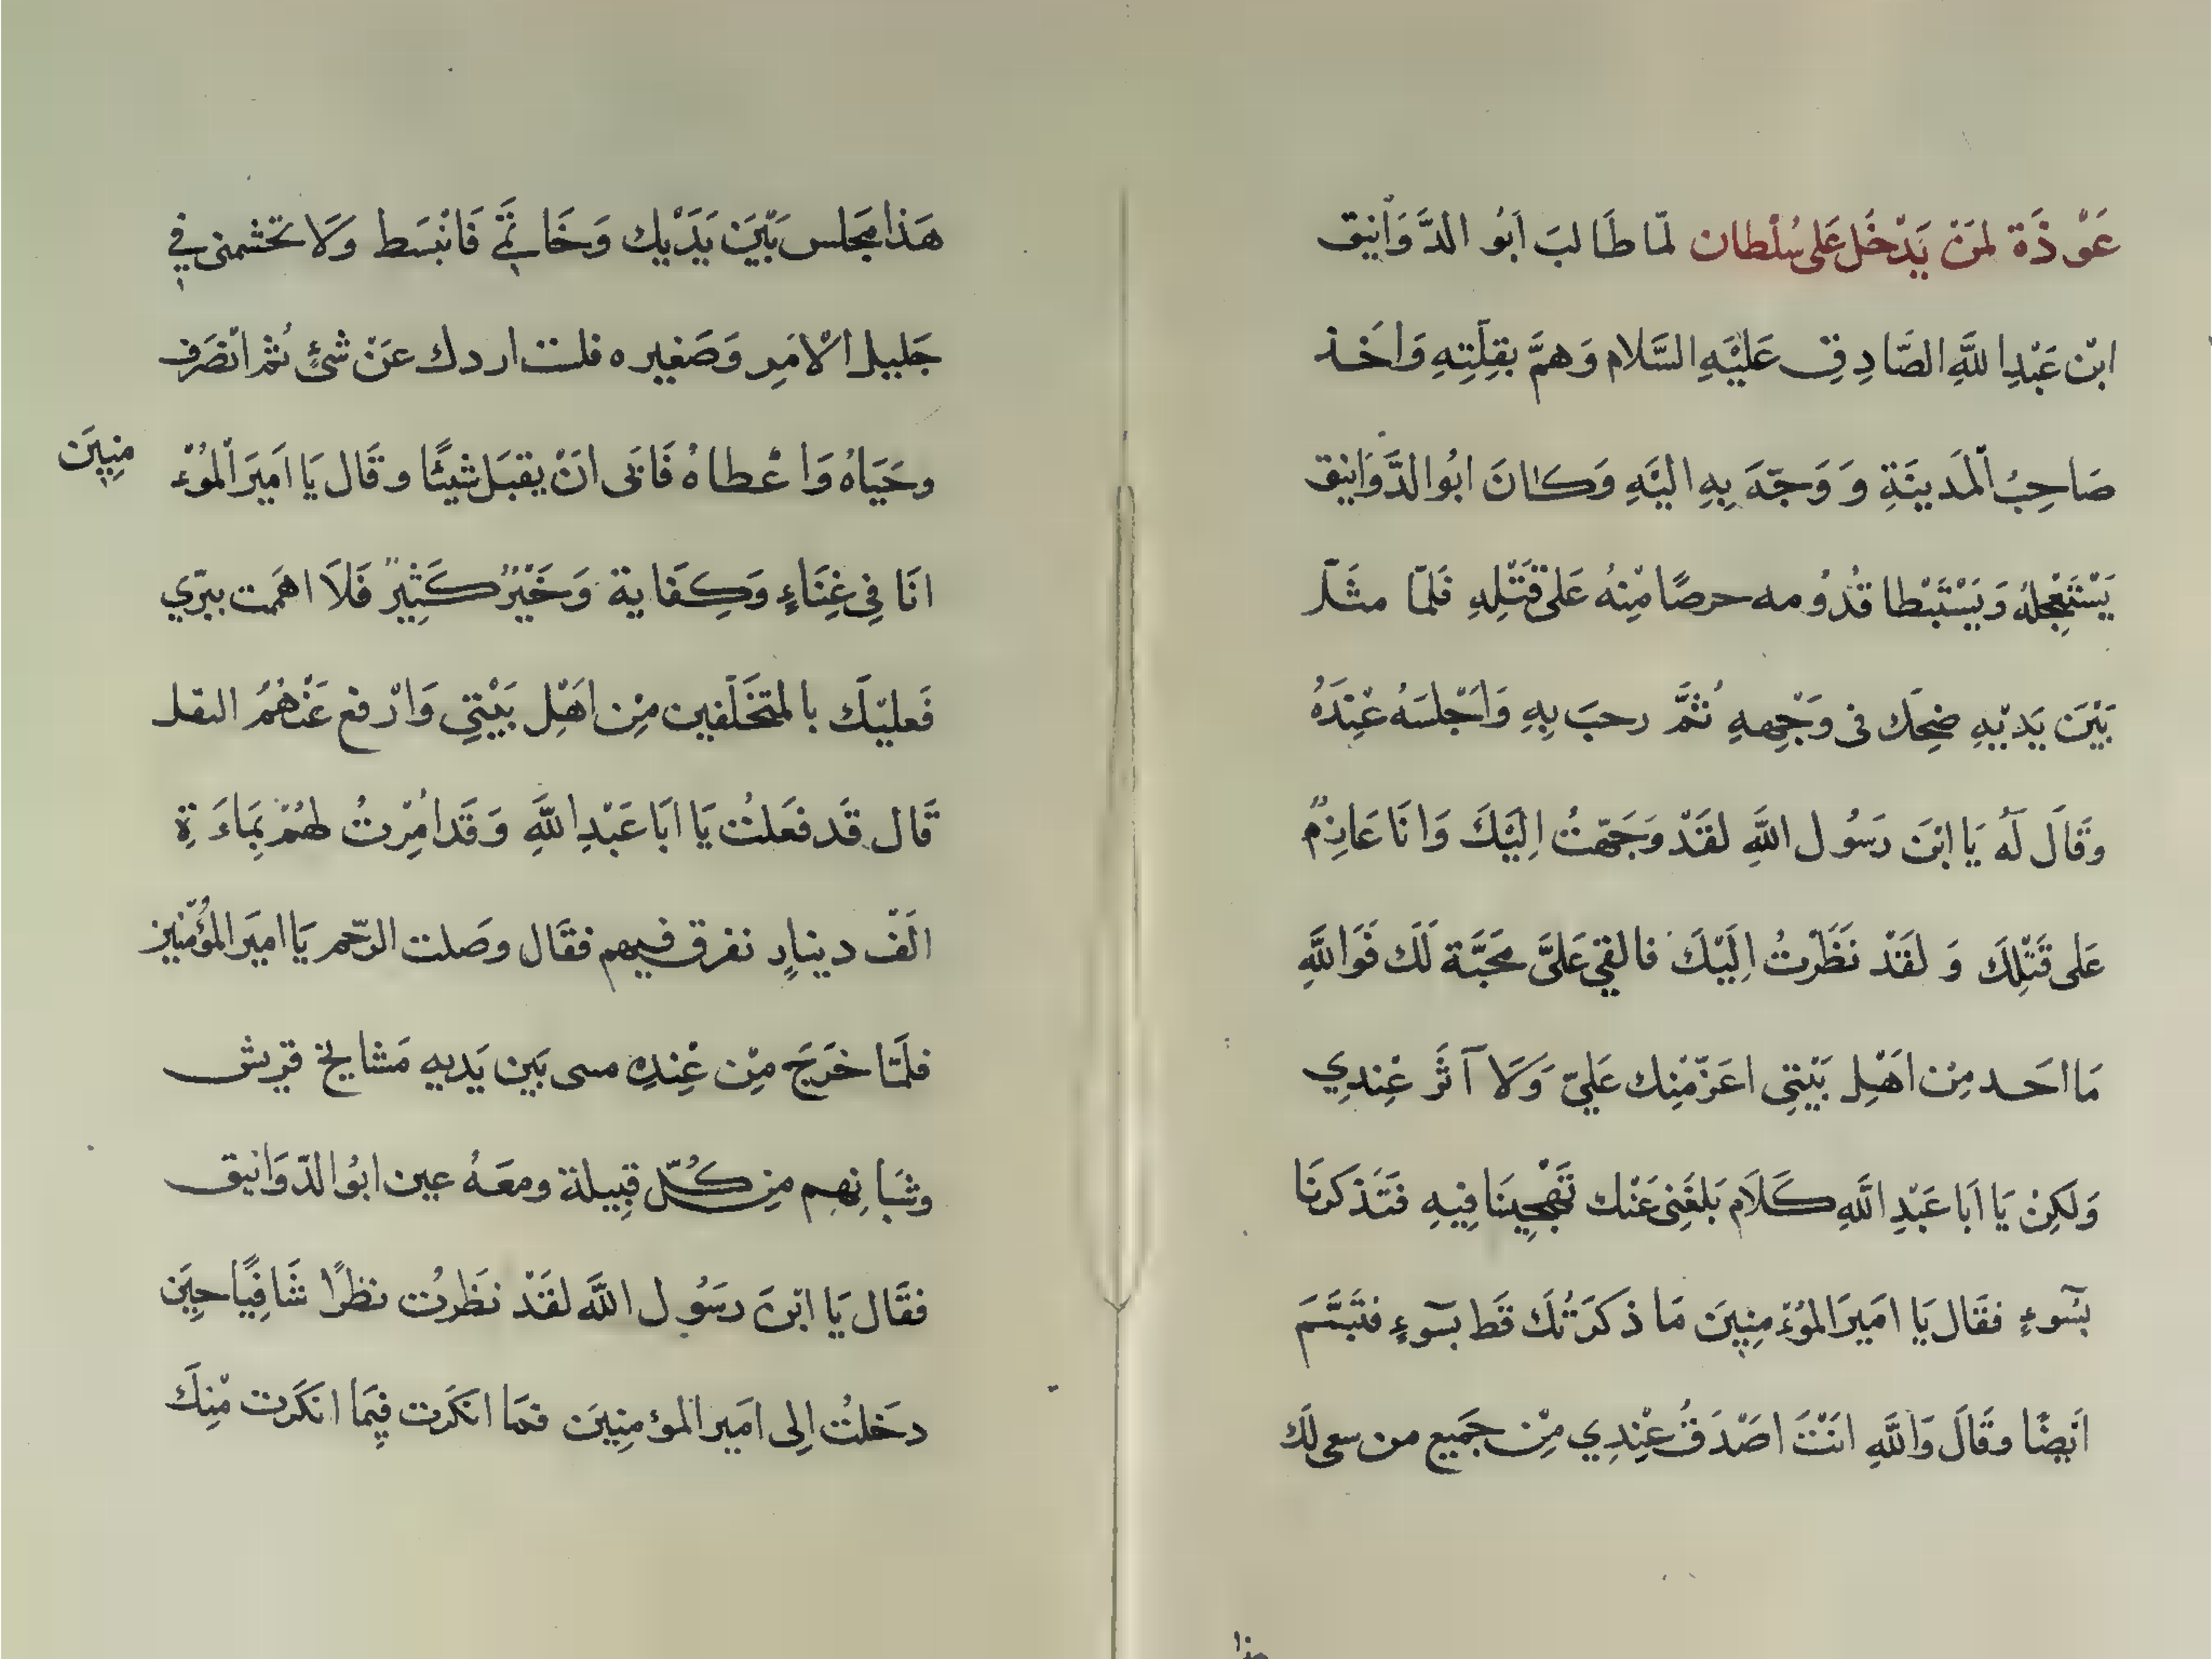 عَوْذَة لمَنْ يَدْخُل عَلى سُلْطان لمّا طَالبَ اَبُو الدَّوَاْنِيق
ابْن عَبْدِ اللَّهِ الصَّادِقِ عَلَيْهِ السَّلام وَهمَّ بقِتلِهِ وَاَخَذ
صَاحِبُ الْمَدينَةِ وَ وَجّهَ بِهِ اليْهِ وَكانَ ابُو الدَّوَانيق
يَسْتَعْجِلهُ وَيَسْتَبْطا قُدُومه حرصًا مِنْهُ عَلى قَتْلِهِ فَلمّا مثَلَ
بَيْنَ يَديْهِ ضِحَك فى وَجْهِهِ ثُمَّ رحبَ بِهِ وَاَجْلسَهُ عنِْدَهُ
وقَالَ لَهُ يَا ابْنَ رَسُول اللَّهِ لقَدْ وَجَهّتُ اِليْكَ وَانَا عَازِمٌ
عَلى قَتْلِكَ وَ لقَدْ نَظَرْتُ اِلَيْكَ فالقي عَليَّ محَبَّة لَك فَوَاللَّهِ
مَا احَد مِنْ اهَْلِ بَيْتِى اعَزّ مِنْك عَليّ وَلَا آثَر عِنْدِي
وَلكِنْ يَا اَبَا عَبْدِ اللَّهِ كَلَام بَلغَنِى عَنْك تَهْجِيِنَا فِيهِ فتَذكَرنَا
بسُوءٍ فقَال يَا امَيرَ المُؤمِنِينَ مَا ذكَرَتُك قَط بسوءٍ فتَبَسَّمَ
اَيضًا وقَالَ وَاللَّهِ انَتْ اصْدَقُ عِنْدِي مِنْ جَميِع من سعى لَك
هذا
هَذا مجَلس بَيْنَ يَدَيْك وَخَاتَمِي فَانْبسَط وَلَا تخشمنى فِي
جَليل اْلامَرِ وَصَغيره فلست اردك عَنْ شئٍ ثُم انْصَرَف
وحَيَاهُ وَاعْطاهُ فَابَى انْ يقبَل شيئًا وقَال يَا اَميَر المُؤْ منِينَ
انَا فِى غِنَاءٍ وَكِفَاية وَخَيْرٌ كَثِيرٌ فَلَا اهمَمت ببرّي
فَعليْك بالمتخَلّفين مِنْ اهَْل بَيْتِي وَارْفع عَنْهُمُ القتل
قَال قَد فعَلتُ يَا ابَا عَبْدِ اللَّهِ وَقَد امُرْتُ لهُمْ بِمَاءَةِ
الَفْ دينارٍ نفرق فيهم فقَال وصَلت الرّحم يَا اميَر المؤمنين
فلَمّا خرَجَ مِنْ عِنْدِه مسى بَين يَديهِ مَشايخ قريش
وشبَانِهِم مِنْ كُلّ قِبيلة ومعَهُ عين ابُو الدّوَانيق
فقَال يَا ابْنَ رسَوُل اللَّه لقَدْ نظَرتُ نظرًا شَافِيًا حِينَ
دخَلتُ اِلى امَير المؤمِنِينَ فمَا انكَرت فِيمَا انكَرت مِنْكَ